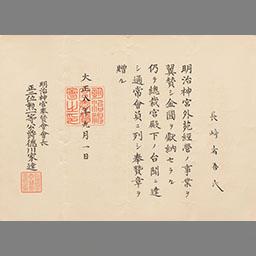 長崎省吾氏
明治神宮外苑經營ノ事業ヲ
翼賛シ金圓ヲ獻納セラル
仍テ總裁宮殿下ノ台聞ニ達
シ通常會員ニ列シ奉贊章ヲ
贈ル
大正八年九月一日
明治神宮奉贊會會長
正二位勲一等公爵德川家達